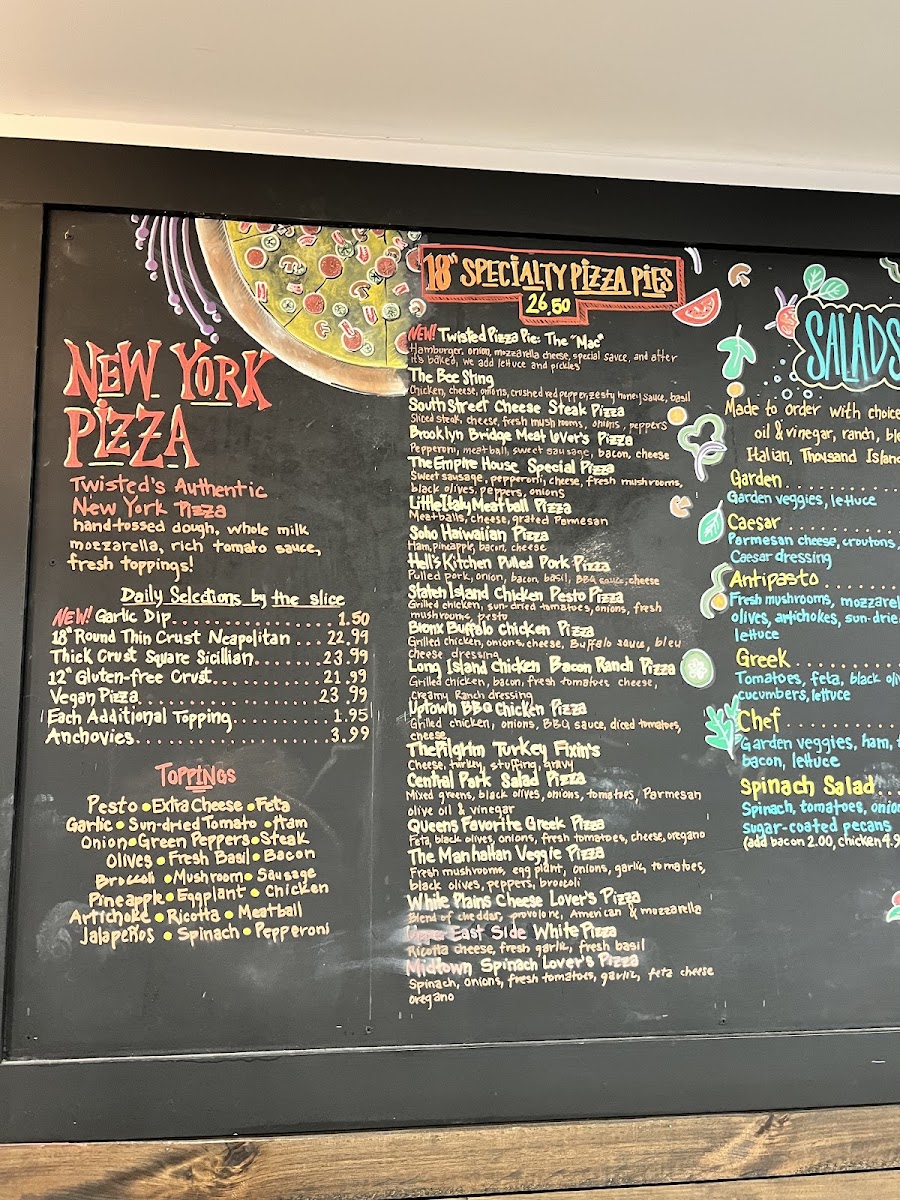 NEW YORK
PIZZA
Twisted's Authentic
New York Pizza
hand-tossed dough, whole milk
mozzarella, rich tomato sauce,
fresh toppings!
Daily Selections by the slice
NEW! Garlic Dip..................1.50
18" Round Thin Crust Neapolitan....22.99
Thick Crust Square Sicilian.......23.99
12" Gluten-free Crust............21.99
Vegan Pizza....................23.99
Each Additional Topping..........1.95
Anchovies......................3.99
TOPPINGS
Pesto • Extra Cheese • Feta
Garlic • Sun-dried Tomato • Ham
Onion • Green Peppers • Steak
Olives • Fresh Basil • Bacon
Broccoli • Mushroom • Sausage
Pineapple • Eggplant • Chicken
Artichoke • Ricotta • Meatball
Jalapeños • Spinach • Pepperoni
18" SPECIALTY PIZZA PIES
26.50
NEW! Twisted Pizza Pie: The "Mac"
Hamburger, onion, mozzarella cheese, special sauce, and after
it's baked, we add lettuce and pickles
The Bee Sting
Chicken, cheese, onions, crushed red pepper, zesty honey sauce, basil
South Street Cheese Steak Pizza
Sliced steak, cheese, fresh mushrooms, onions, peppers
Brooklyn Bridge Meat lover's Pizza
Pepperoni, meatball, sweet sausage, bacon, cheese
The Empire House Special Pizza
Sweet sausage, pepperoni, cheese, fresh mushrooms,
black olives, peppers, onions
Little Italy Meatball Pizza
Meatballs, cheese, grated Parmesan
Soho Haiwaiian Pizza
Ham, pineapple, bacon, cheese
Hell's Kitchen Pulled Pork Pizza
Pulled pork, onion, bacon, basil, BBQ sauce, cheese
Staten Island Chicken Pesto Pizza
Grilled chicken, sun-dried tomatoes, onions, fresh
mushrooms, pesto
Bronx Buffalo Chicken Pizza
Grilled chicken, onions, cheese, Buffalo sauce, bleu
cheese dressing
Long Island Chicken Bacon Ranch Pizza
Grilled chicken, bacon, fresh tomatoes cheese,
creamy Ranch dressing
Uptown BBQ Chicken Pizza
Grilled chicken, onions, BBQ sauce, diced tomatoes,
cheese
The Pilgrim Turkey Fixin's
Cheese, turkey, stuffing, gravy
Central Park Salad Pizza
Mixed greens, black olives, onions, tomatoes, Parmesan
olive oil & vinegar
Queens Favorite Greek Pizza
Feta, black olives, onions, fresh tomatoes, cheese, oregano
The Manhattan Veggie Pizza
Fresh mushrooms, egg plant, onions, garlic, tomatoes,
black olives, peppers, brocoli
White Plains Cheese Lover's Pizza
Blend of cheddar, provolone, American & mozzarella
Upper East Side White Pizza
Ricotta cheese, fresh garlic, fresh basil
Midtown Spinach Lover's Pizza
Spinach, onions, fresh tomatoes, garlic, feta cheese
oregano
SALADS
Made to order with choice
oil & vinegar, ranch,
Italian, Thousand Island
Garden
Garden veggies, lettuce
Caesar
Parmesan cheese, croutons,
Caesar dressing
Antipasto
Fresh mushrooms,
olives, artichokes,
lettuce
Greek
Tomatoes, feta, black
cucumbers, lettuce
Chef
Garden veggies, ham,
bacon, lettuce
Spinach Salad
Spinach, tomatoes,
sugar-coated pecans
(add bacon 2.00, chicken